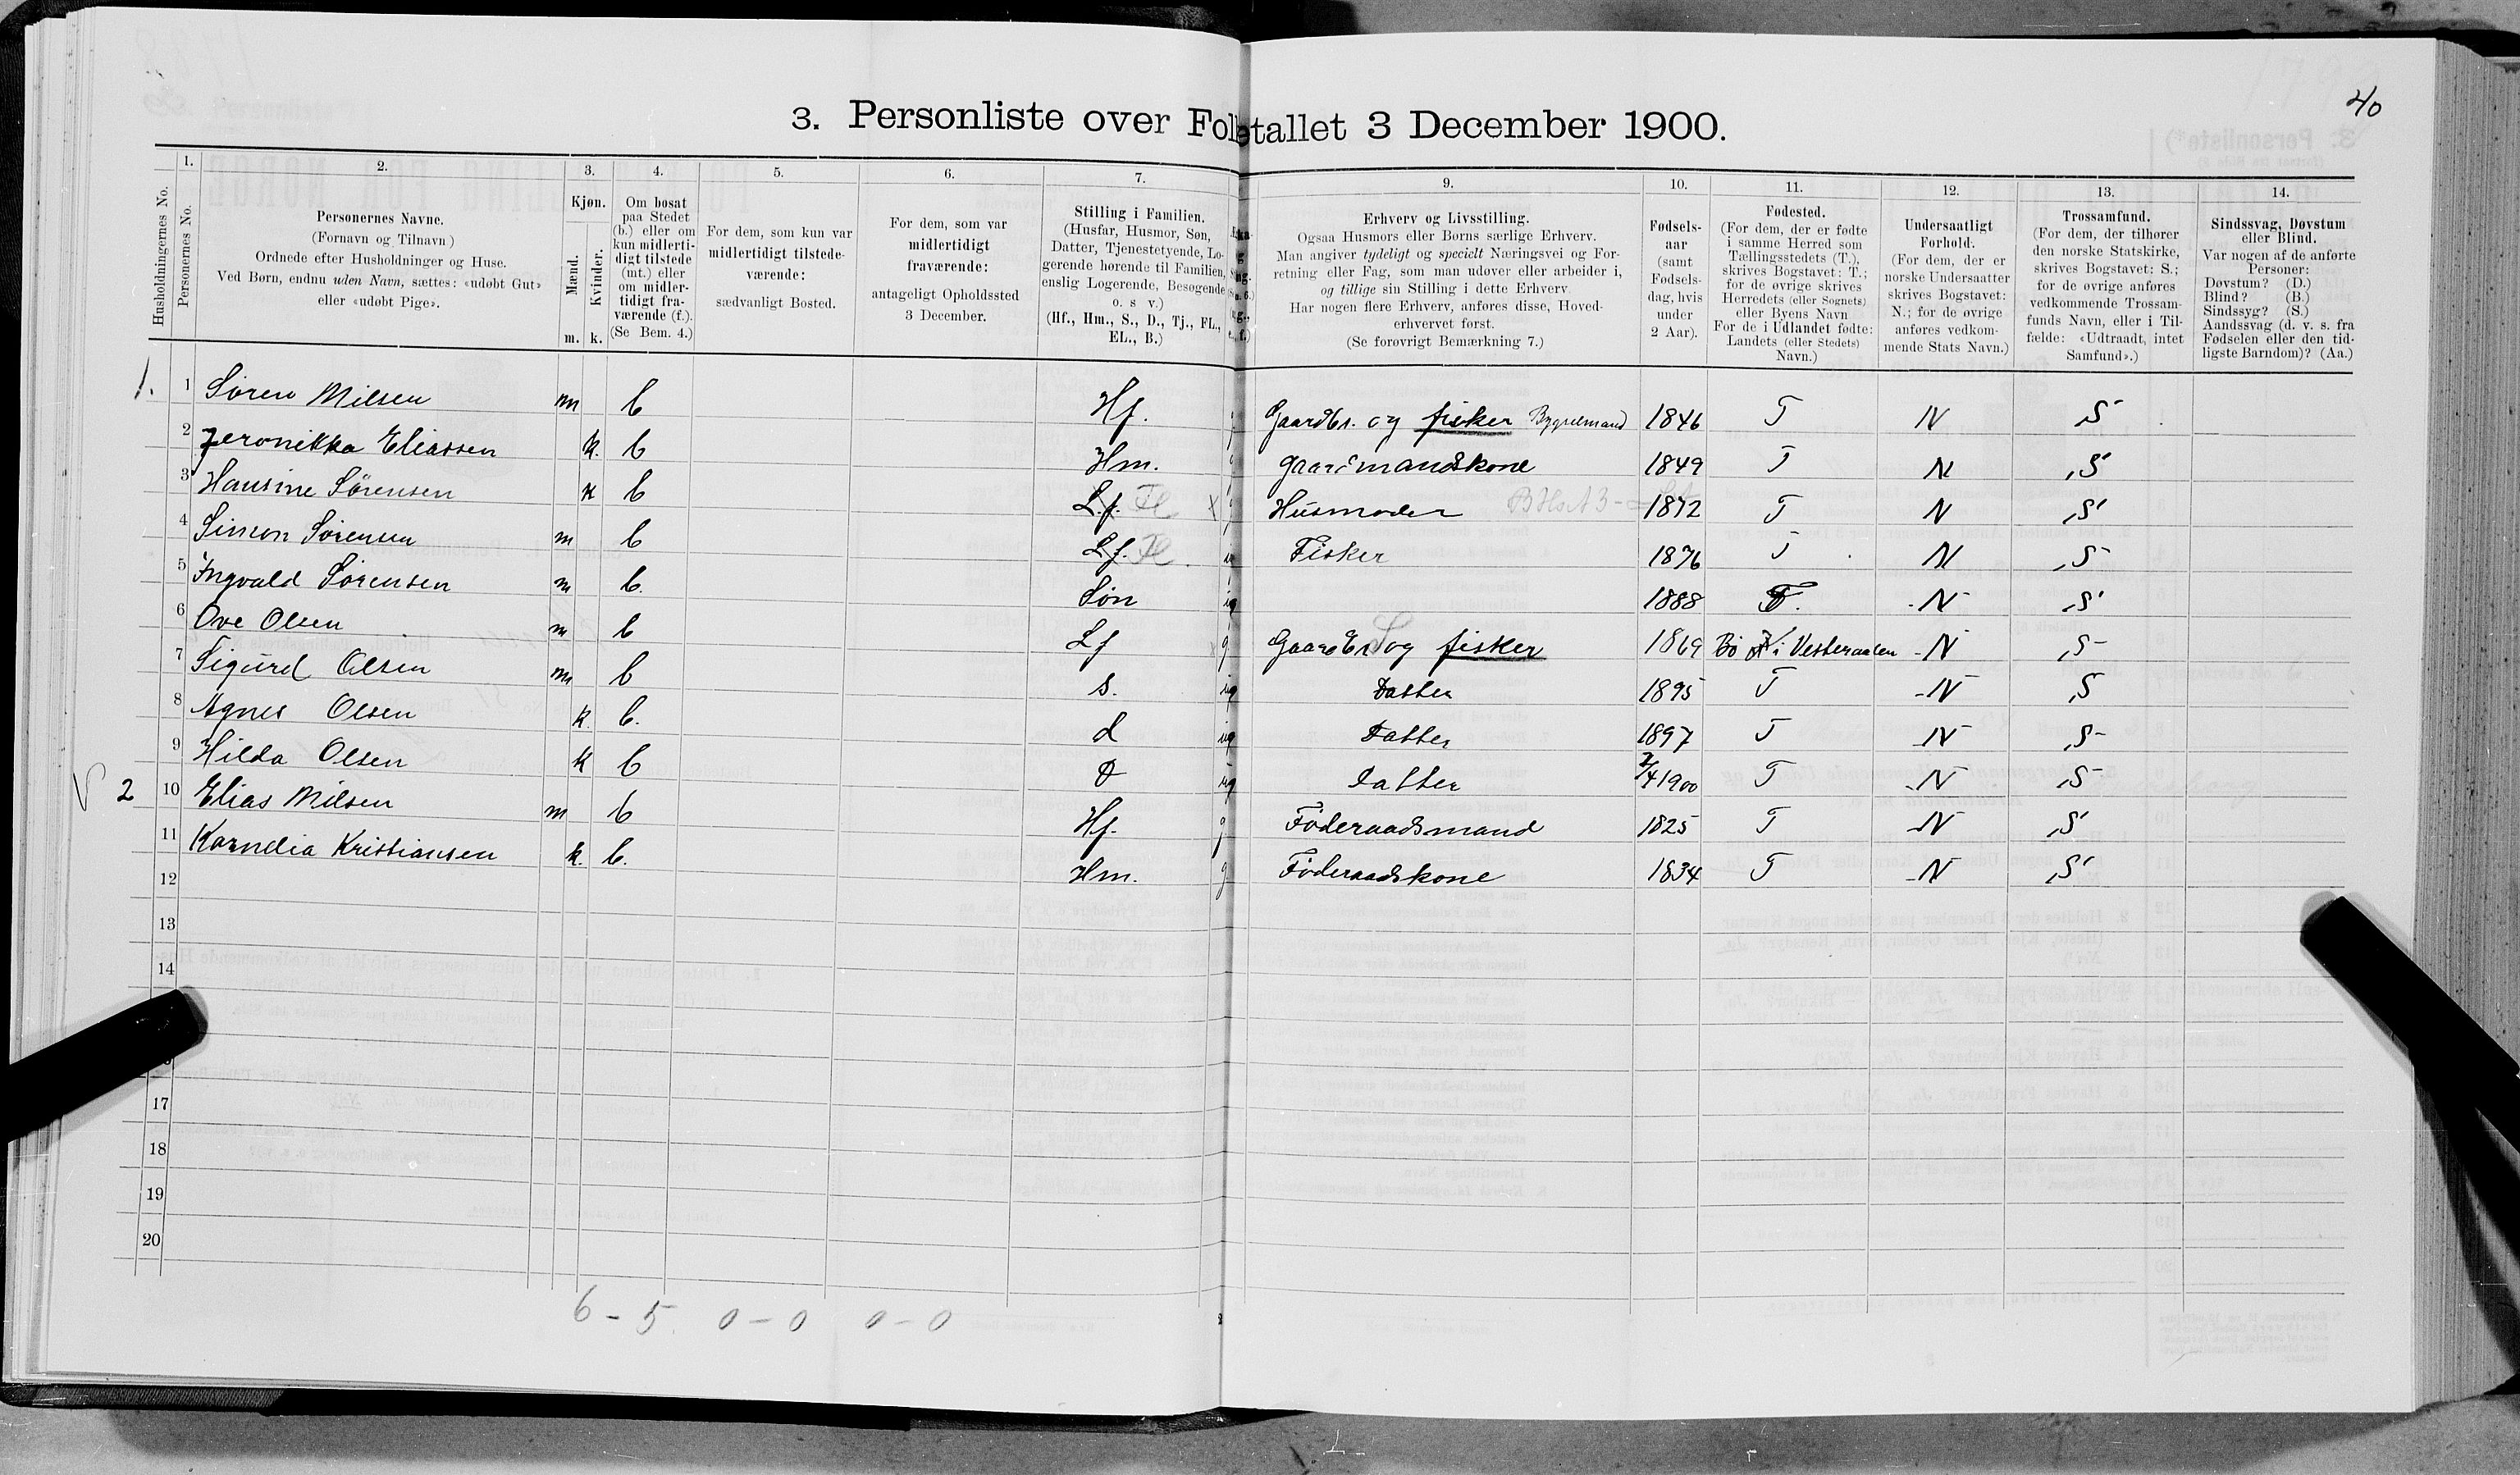 40
3. Personliste over Folketallet 3 December 1900.
Husholdningernes No.
1. Personernes No.
2. Personernes Navne.
(Fornavn og Tilnavn)
Ordnede efter Husholdninger og Huse.
Ved Børn, endnu uden Navn, sættes: «udøbt Gut»
eller «udøbt Pige».
3. Kjøn.
Mænd. m.
Kvinder. k.
4. Om bosat
paa Stedet
(b.) eller om
kun midlerti-
digt tilstede
(mt.) eller
om midler-
tidigt fra-
værende (f.).
(Se Bem. 4.)
5. For dem, som kun var
midlertidigt tilstede-
værende:
sædvanligt Bosted.
6. For dem, som var
midlertidigt
fraværende:
antageligt Opholdssted
3 December.
7. Stilling i Familien.
(Husfar, Husmor, Søn,
Datter, Tjenestetyende, Lo-
gerende hørende til Familien,
enslig Logerende, Besøgende
o. s v.)
(Hf., Hm., S., D., Tj., FL.,
EL., B.)
9. Erhverv og Livsstilling.
Ogsaa Husmors eller Børns særlige Erhverv.
Man angiver tydeligt og specielt Næringsvei og For-
retning eller Fag, som man udøver eller arbeider i,
og tillige sin Stilling i dette Erhverv
Har nogen flere Erhverv, anføres disse, Hoved-
erhvervet først.
(Se forøvrigt Bemærkning 7.)
10. Fødsels-
aar
(samt
Fødsels-
dag, hvis
under
2 Aar).
11. Fødested.
(For dem, der er fødte
i samme Herred som
Tællingsstedets (T.),
skrives Bogstavet: T.;
for de øvrige skrives
Herredets (eller Sognets)
eller Byens Navn
For de i Udlandet fødte:
Landets (eller Stedets)
Navn.)
12. Undersaatligt
Forhold.
(For dem, der er
norske Undersaatter
skrives Bogstavet:
N.; for de øvrige
anføres vedkom-
mende Stats Navn.)
13. Trossamfund.
(For dem, der tilhører
den norske Statskirke,
skrives Bogstavet: S.;
for de øvrige anføres
vedkommende Trossam-
funds Navn, eller i Til-
fælde: «Udtraadt, intet
Samfund».)
14. Sindssvag, Døvstum
eller Blind.
Var nogen af de anførte
Personer:
Døvstum? (D.)
Blind? (B.)
Sindssyg? (S.)
Aandssvag (d. v. s. fra
Fødselen eller den tid-
ligste Barndom)? (Aa.)
1. 1 Søren Nilsen m b Hf. g Gaardbr. og fisker 1846 T N S
2 Jeronikka Eliassen k. b Hm. g gaardmandskone 1849 T N S
3 Hansine Sørensen k b L.f. Fl x g Husmoder 1872 T N S
4 Simon Sørensen m b L.f. Fl. Fisker 1876 T N S
5 Ingvald Sørensen m b. Søn ug 1888 T. N S
6 Ove Olsen m b Lf g Gaardbr og fisker 1869 Bø i Vesteraalen N S
7 Sigurd Olsen m b s. ug Datter 1895 T N S
8 Agnes Olsen k. b. d ug Datter 1897 T N S
9 Hilda Olsen k b d ug Datter 7/4 1900 T N S
2 10 Elias Nilsen m b Hf. g Föderaadsmand 1825 T N S
11 Kornelia Kristiansen k. b. Hm. g Föderaadskone 1834 T N S
12
13
14
17
18
19
20
6 - 5 0 - 0 0 - 0